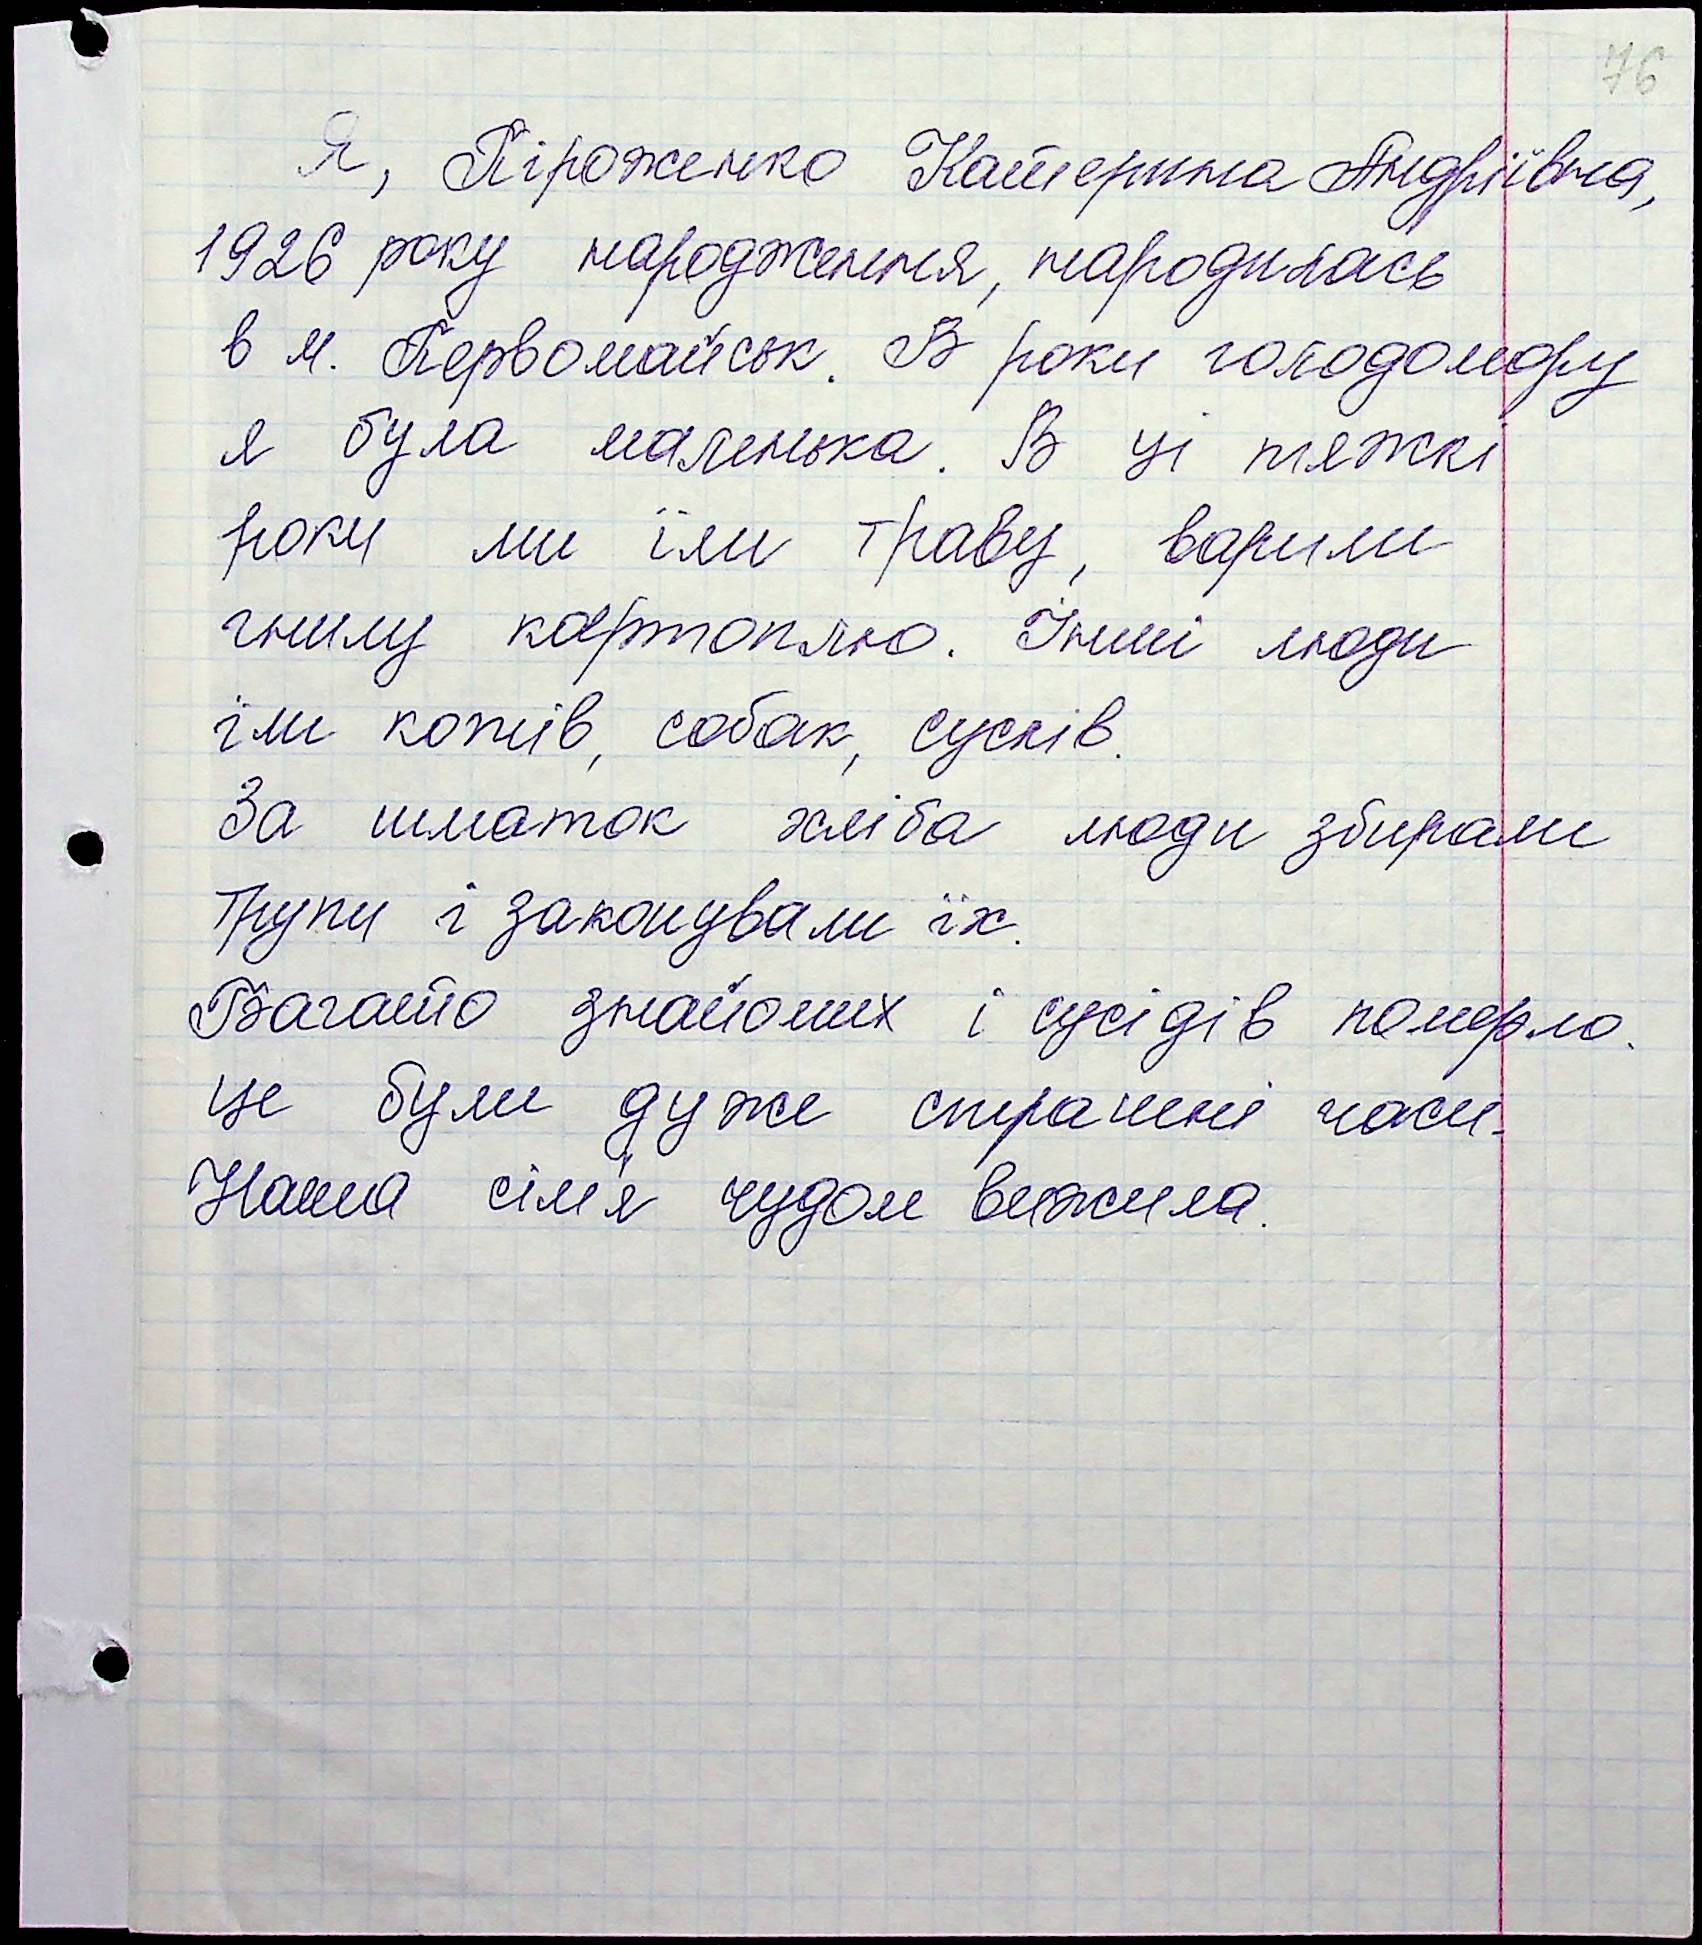 76
Я, Піроженко Катерина Андріївна,
1926 року народження, народилась
в м. Первомайськ. В роки голодомору
я була маленька. В ці тяжкі
роки ми їли траву, варили
гнилу картоплю. Інші люди
їли котів, собак, сусків.
За шматок хліба люди збирали
трупи і закопували їх.
Багато знайомих і сусідів померло.
Це були дуже страшні часи.
Наша сім'я чудом вижила.